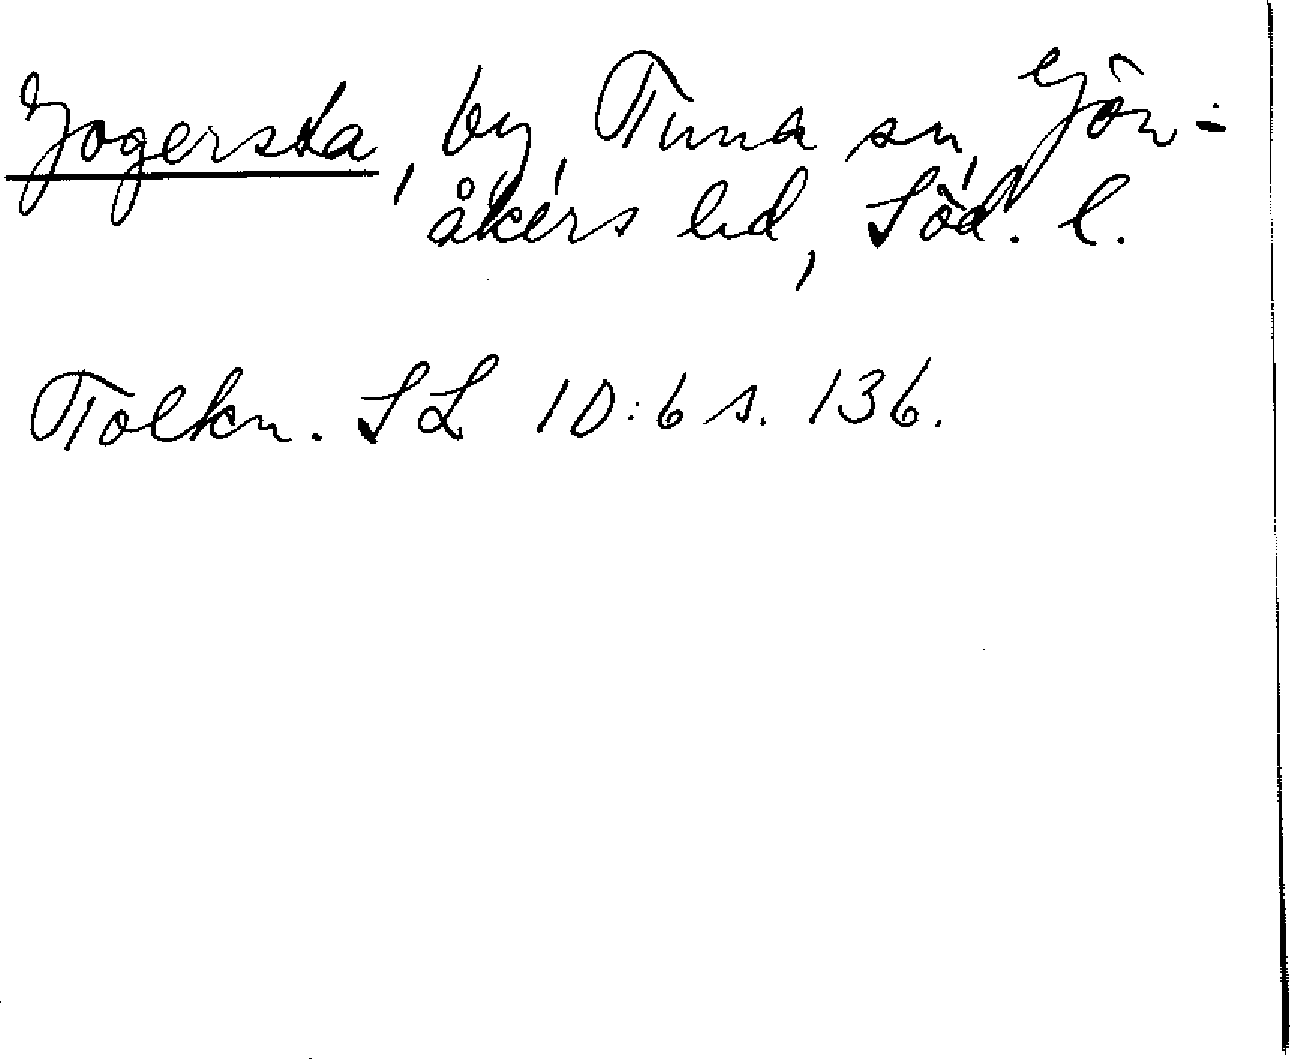 Jogersta, by, Tuna sn, Jön-
åkers hd, Söd. l.
Tolkn. SL 10:6 s. 136.